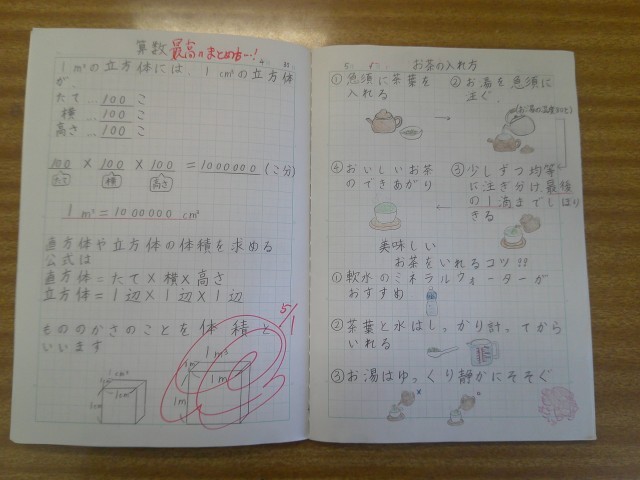 算数 最高のまとめ方…!
1m³の立方体には、1cm³の立方体
が、
たて…100こ
横…100こ
高さ…100こ
100×100×100=1000000(こ分)
たて 横 高さ
1m³=1000000cm³
直方体や立方体の体積を求める
公式は
直方体=たて×横×高さ
立方体=1辺×1辺×1辺
もののかさのことを体積と
いいます
5/1
1cm³
1cm
1m³
1m
1m
お茶の入れ方
①急須に茶葉を
入れる
②お湯を急須に
注ぐ
③少しずつ均等
に注ぎ分け、最後
の1滴までしぼり
きる
④おいしいお茶
のできあがり
美味しい
お茶をいれるコツ??
①軟水のミネラルウォーターが
おすすめ
②茶葉と水はしっかり計ってから
いれる
③お湯はゆっくり静かにそそぐ